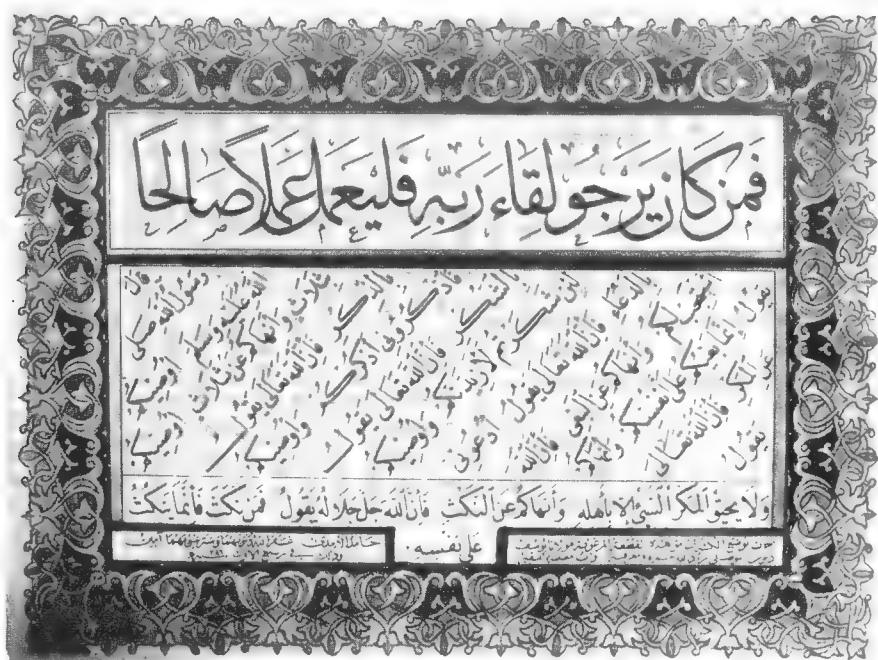 فَمَنْ كَانَ يَرْجُو لِقَاءَ رَبِّهِ فَلْيَعْمَلْ عَمَلًا صَالِحًا
قال
رسول الله صلى
الله عليه وسلم اوصيكم
بثلاث وانهاكم عن ثلاث اوصيكم
بالذكر فان الله تعالى يقول
فاذكروني اذكركم واوصيكم
بالشكر فان الله تعالى يقول
لئن شكرتم لازيدنكم واوصيكم
بالدعاء فان الله تعالى يقول ادعوني
استجب لكم وانهاكم عن البغي فان الله
يقول انما بغيكم على انفسكم وانهاكم
عن المكر فان الله تعالى
يقول
ولا يحيق المكر السيئ الا باهله وانهاكم عن النكث فان الله جل جلاله يقول فمن نكث فانما ينكث
على نفسه